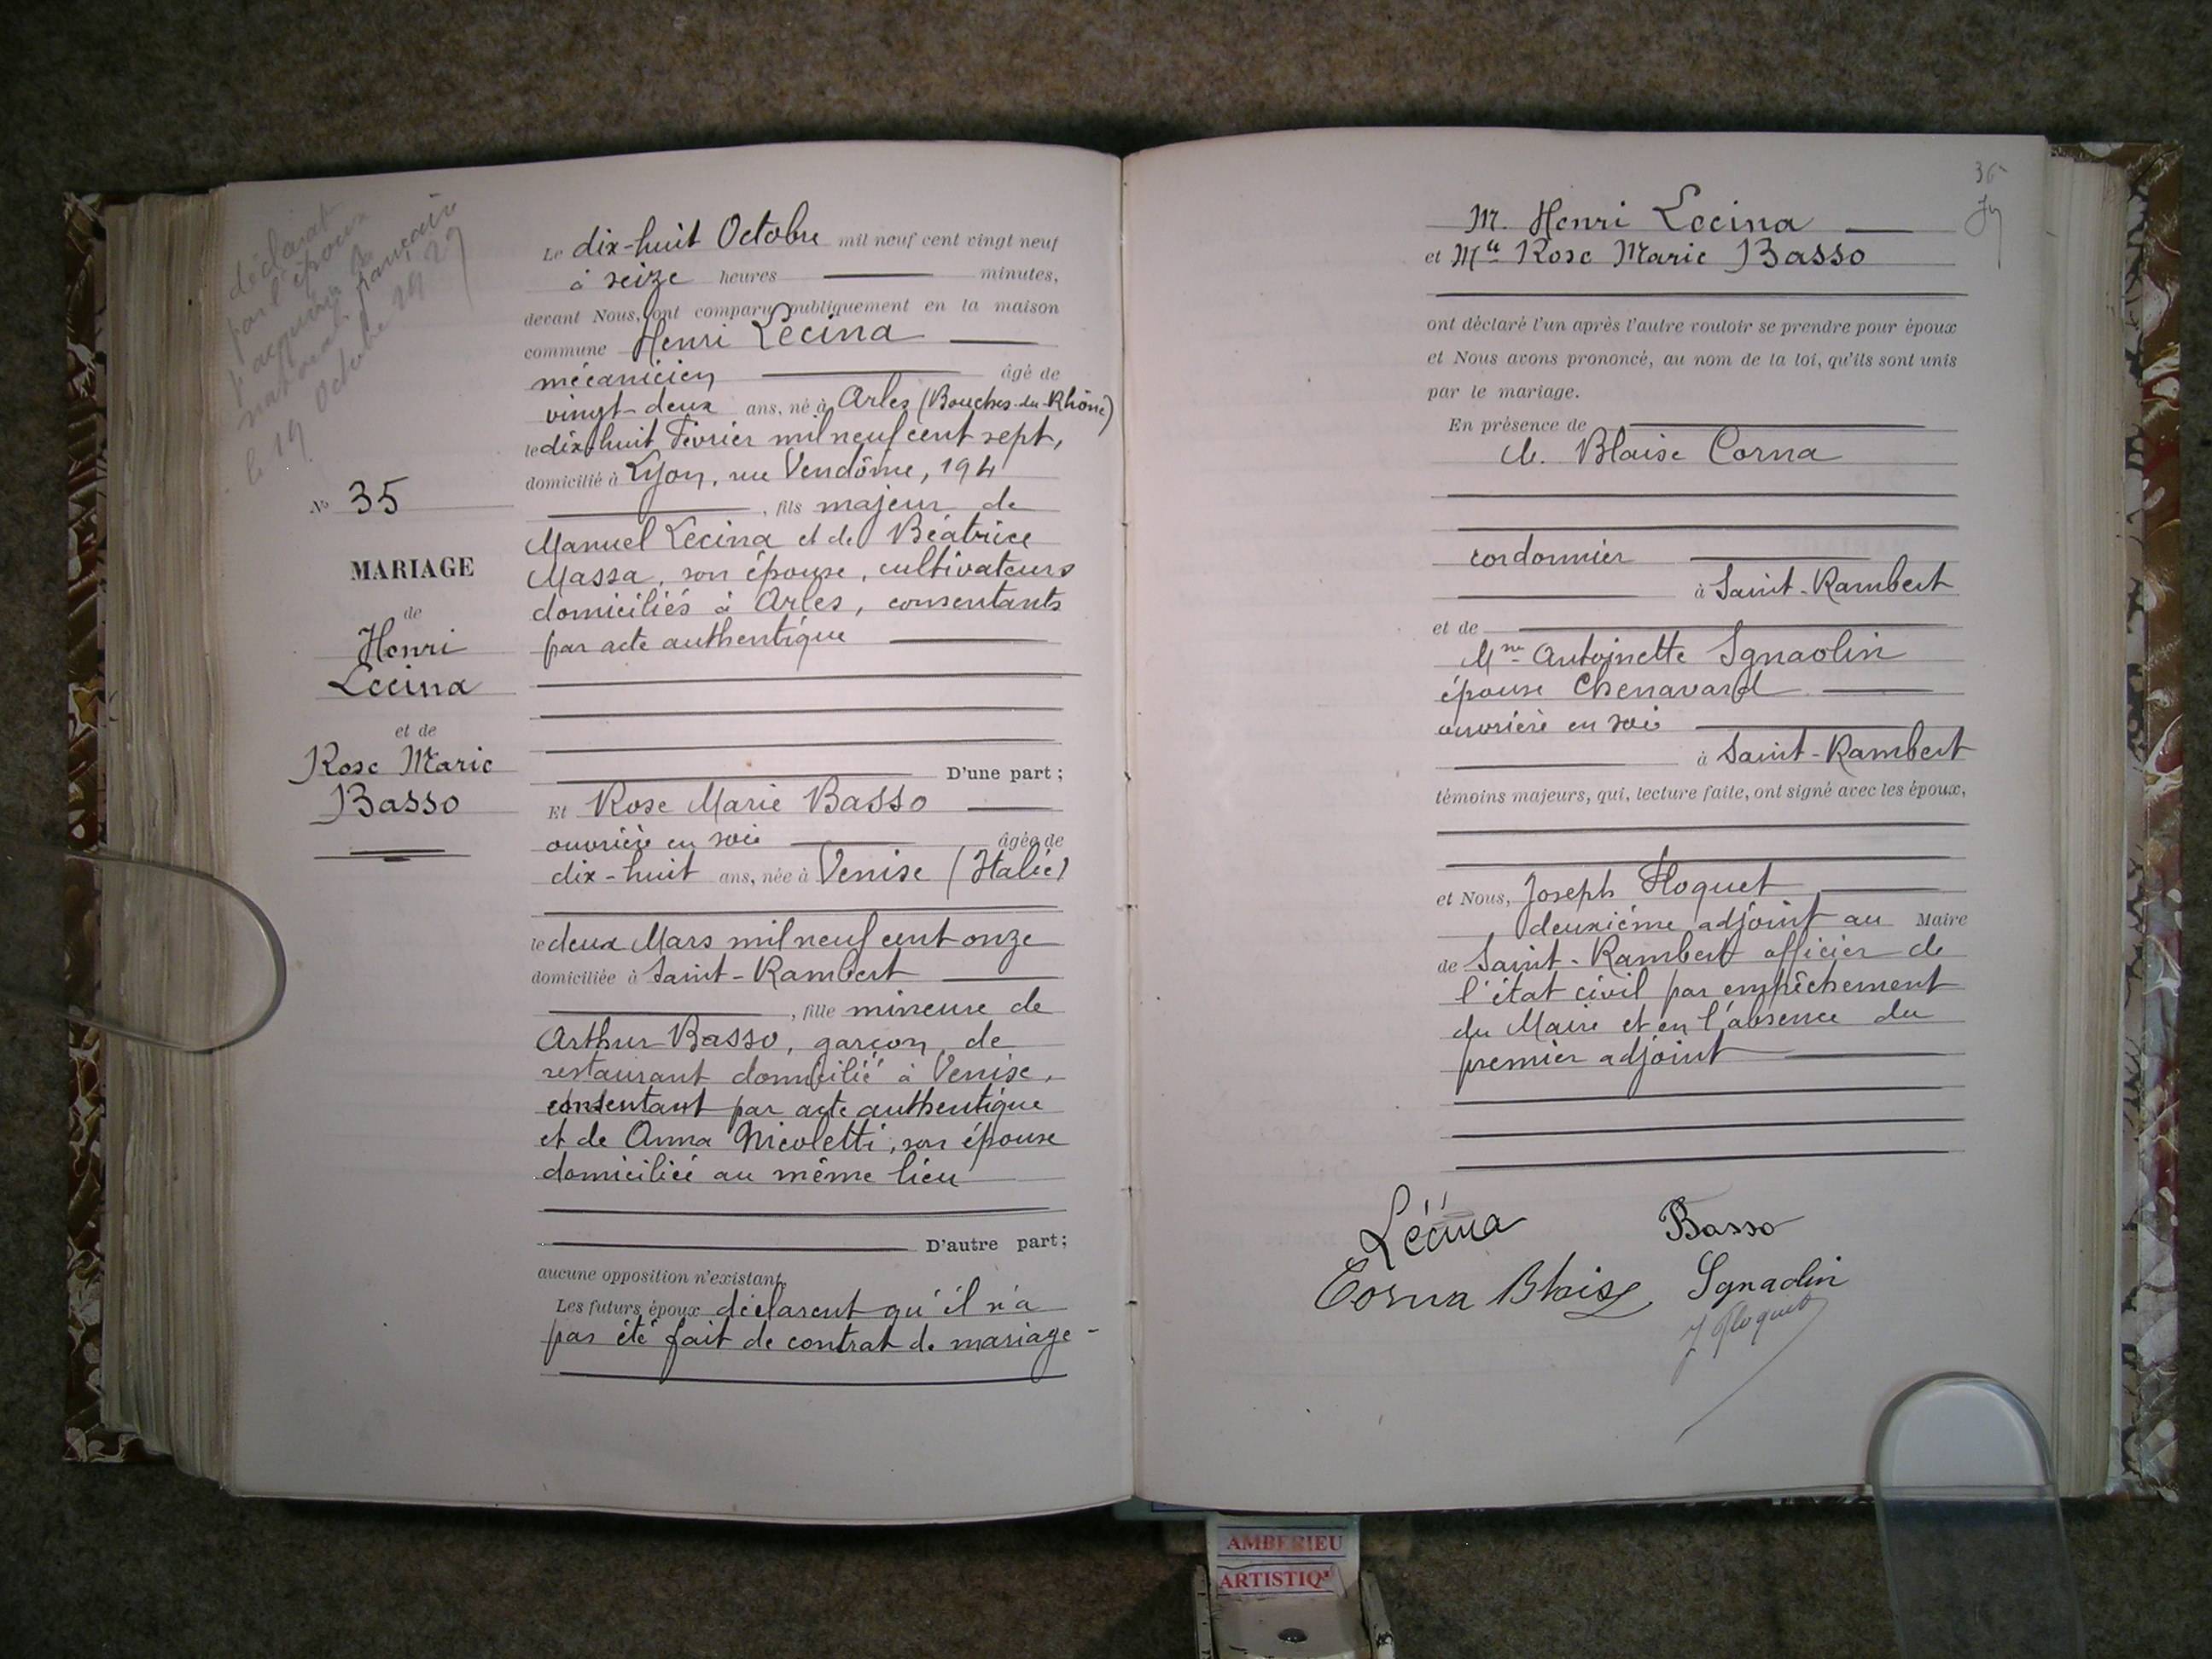 déclarat
par l'épouse
p acquérir la
national. française
le 19 Octobre 1929
N° 35
MARIAGE
de
Henri
Lecina
et de
Rose Marie
Basso
Le dix-huit Octobre mil neuf cent vingt neuf
à seize heures minutes,
devant Nous, ont comparu publiquement en la maison
commune Henri Lecina
mécanicien âgé de
vingt-deux ans, né à Arles (Bouches-du-Rhône)
le dix huit Février mil neuf cent sept,
domicilié à Lyon, rue Vendôme, 194
, fils majeur de
Manuel Lecina et de Béatrice
Massa, son épouse, cultivateurs
domiciliés à Arles, consentants
par acte authentique
D'une part ;
Et Rose Marie Basso
ouvrière en soie âgée de
dix-huit ans, née à Venise (Italie)
le deux Mars mil neuf cent onze
domiciliée à Saint-Rambert
, fille mineure de
Arthur Basso, garçon de
restaurant domicilié à Venise,
consentant par acte authentique
et de Anna Nicoletti, son épouse
domiciliée au même lieu
D'autre part ;
aucune opposition n'existant,
Les futurs époux déclarent qu'il n'a
pas été fait de contrat de mariage -
36
M. Henri Lecina
et Mlle Rose Marie Basso
ont déclaré l'un après l'autre vouloir se prendre pour époux
et Nous avons prononcé, au nom de la loi, qu'ils sont unis
par le mariage.
En présence de
M. Blaise Corna
cordonnier
à Saint-Rambert
et de
Mme Antoinette Sgnaolin
épouse Chenavard
ouvrière en soie
à Saint-Rambert
témoins majeurs, qui, lecture faite, ont signé avec les époux,
et Nous, Joseph Floquet
deuxième adjoint au Maire
de Saint-Rambert officier de
l'état civil par empêchement
du Maire et en l'absence du
premier adjoint
Lécina Basso
Corna Blaise Sgnaolin
J Floquet
AMBERIEU
ARTISTIQ